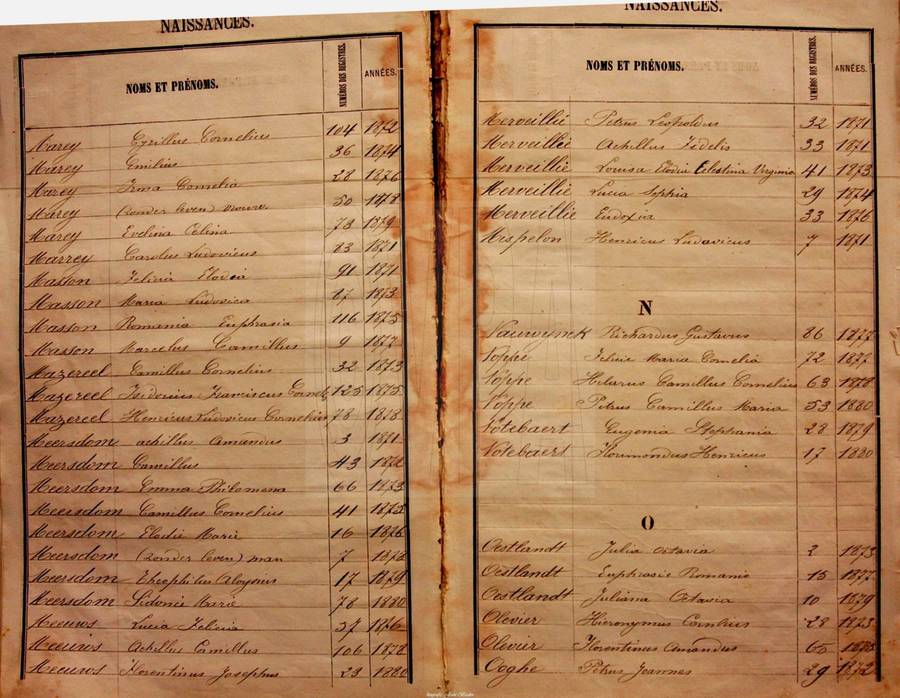 NAISSANCES.
NOMS ET PRÉNOMS. NUMÉROS DES REGISTRES. ANNÉES.
Marey Cyrillus Cornelius 104 1872
Marey Emilius 36 1874
Marey Irma Cornelia 28 1876
Marey (zonder leven) vrouw 50 1878
Marey Evelina Celina 78 1879
Marrey Carolus Ludovicus 83 1871
Masson Felicia Elodia 91 1871
Masson Maria Ludovica 67 1873
Masson Romania Euphrasia 116 1875
Masson Marcelus Camillus 9 1877
Mazereel Camillus Cornelius 32 1873
Mazereel Isidorius Franciscus 125 1875
Mazereel Henricus Ludovicus Cornelius 78 1878
Meersdom achillus Amandus 3 1871
Meersdom Camillus 43 1872
Meersdom Emma Philomena 66 1873
Meersdom Camillus Cornelius 41 1875
Meersdom Elodie Marie 16 1876
Meersdom (zonder leven) man 7 1878
Meersdom Theophilus Aloysius 17 1879
Meersdom Sidonie Marie 78 1880
Meeuws Lucia Felicia 37 1876
Meeuws Achillus Camillus 106 1878
Meeuws Florentinus Josephus 23 1880
NAISSANCES.
NOMS ET PRÉNOMS. NUMÉROS DES REGISTRES. ANNÉES.
Merveillie Petrus Leopoldus 32 1871
Merveillie Achillus Fidelis 33 1871
Merveillie Louisa Elodie Celestina Virginia 41 1873
Merveillie Lucia Sophia 29 1874
Merveillie Eudoxia 33 1876
Mispelon Henricus Ludovicus 7 1871
N
Nauwynck Richardus Gustavus 86 1877
Noppe Felicie Maria Cornelia 72 1877
Noppe Hilarus Camillus Cornelius 63 1878
Noppe Petrus Camillus Maria 53 1880
Notebaert Eugenia Stephania 28 1879
Notebaert Floumondus Henricus 17 1880
O
Oestlandt Julia octavia 2 1873
Oestlandt Euphrasie Romanie 15 1877
Oestlandt Juliana Octavia 10 1879
Olevier Hieronymus 28 1873
Olevier Florentinus Amandus 60 1875
Ooghe Petrus Joannes 29 1872